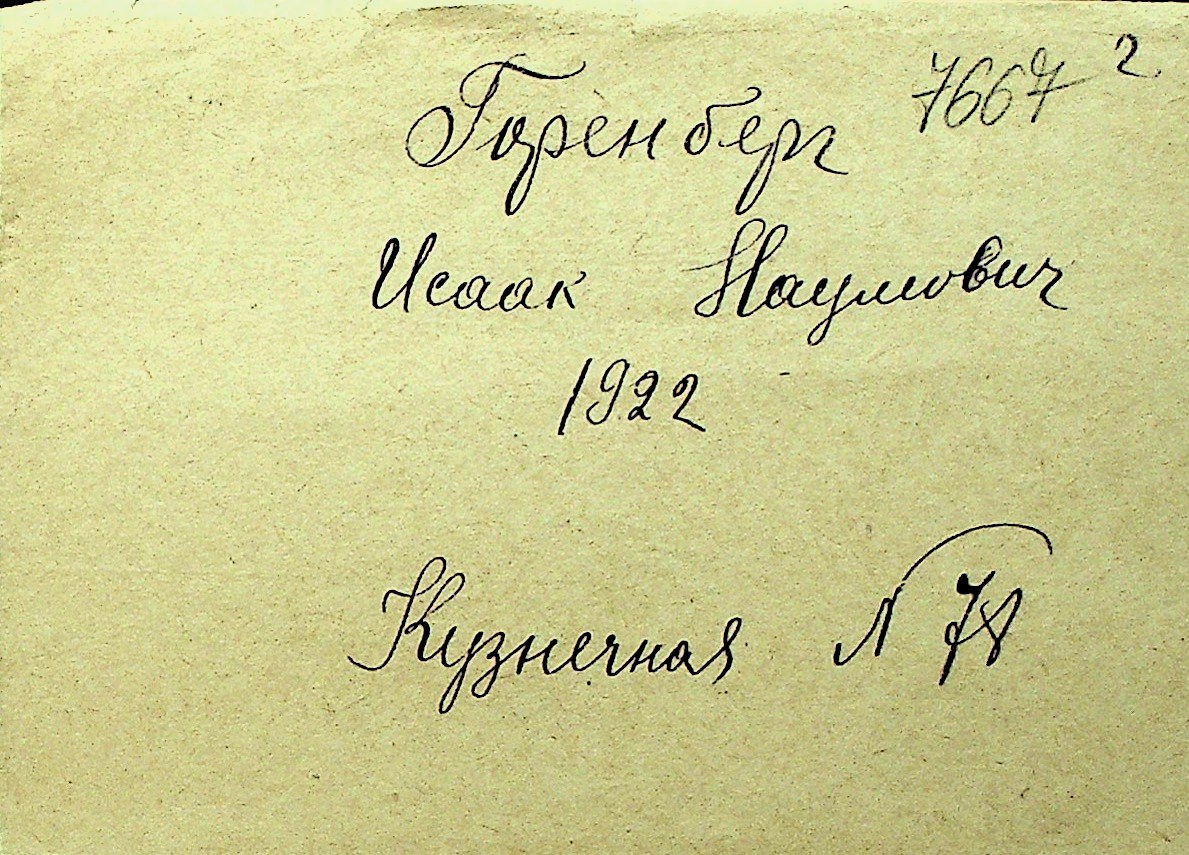 Горенберг 7667 2
Исаак Наумович
1922
Кузнечная N 78